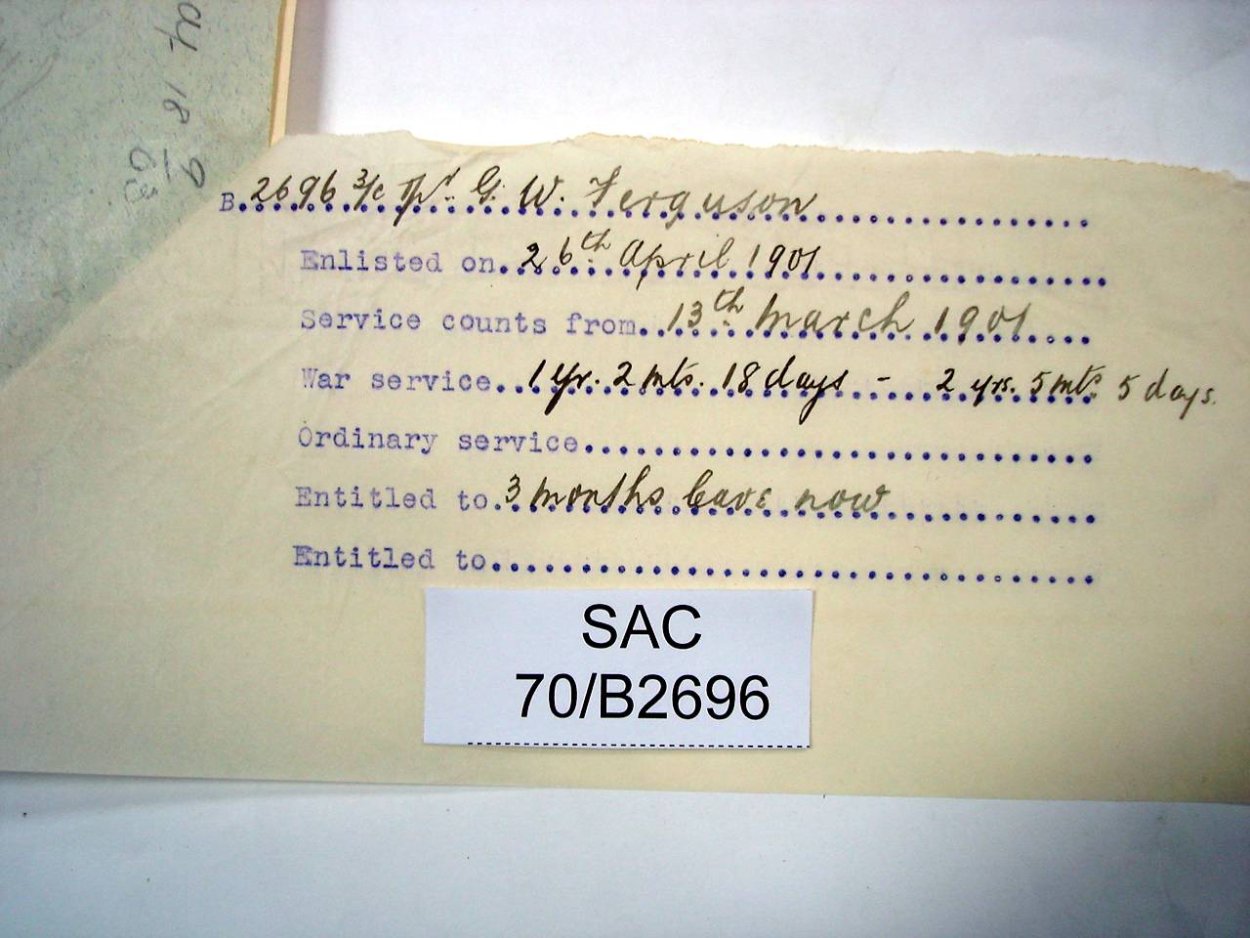 B. 2696 3/c Tpr. G. W. Ferguson
Enlisted on. 26th April 1901
Service counts from. 13th March 1901
War service. 1 yr. 2 mts. 18 days - 2 yrs. 5 mts. 5 days.
Ordinary service
Entitled to. 3 months leave now
Entitled to
SAC
70/B2696
18
9
03